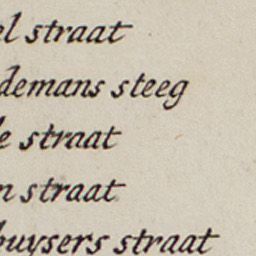 el straat
demans steeg
le straat
n straat
buysers straat